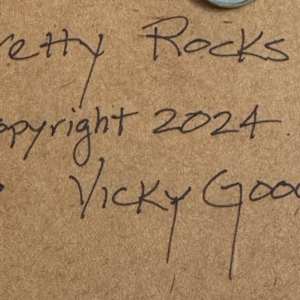 retty Rocks
opyright 2024
Vicky Good